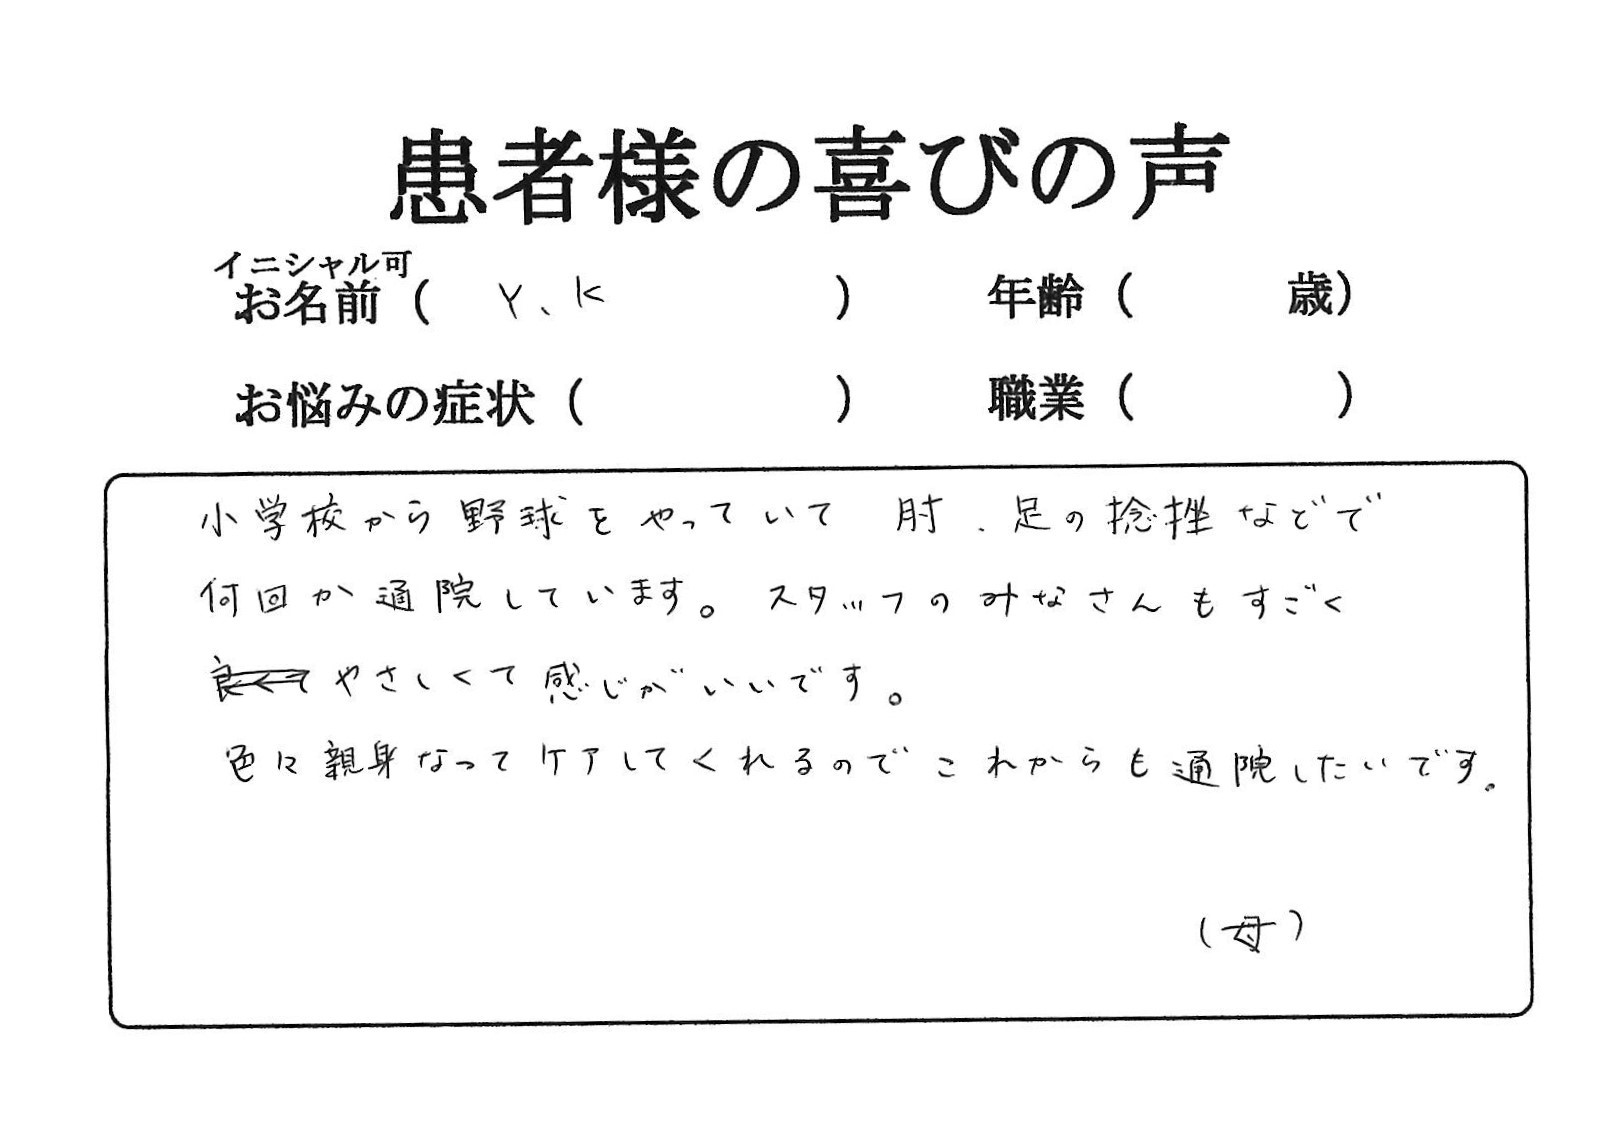 患者様の喜びの声
イニシャル可
お名前 ( Y、K ) 年齢 ( 歳)
お悩みの症状 ( ) 職業 ( )
小学校から野球をやっていて 肘、足の捻挫などで
何回か通院しています。スタッフのみなさんもすごく
良くて やさしくて感じがいいです。
色々親身なってケアしてくれるのでこれからも通院したいです。
(母)